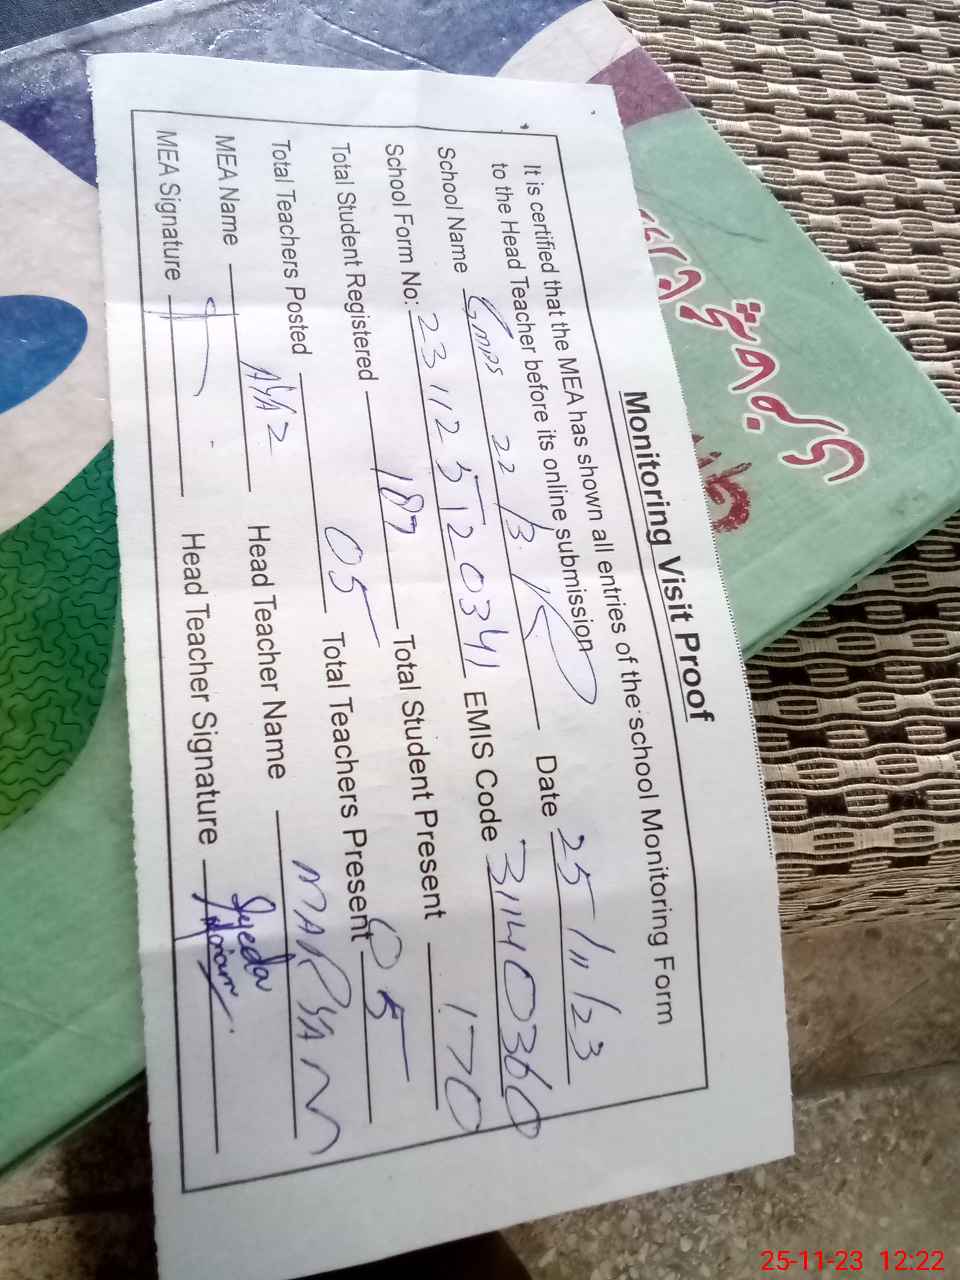 Monitoring Visit Proof
It is certified that the MEA has shown all entries of the school Monitoring Form
to the Head Teacher before its online submission
School Name Gmps 22 B. Date 25/11/23
School Form No: 231125120341 EMIS Code 31140360
Total Student Registered 187 Total Student Present 170
Total Teachers Posted 05 Total Teachers Present 05
MEA Name AYAZ Head Teacher Name MARYAM
MEA Signature Head Teacher Signature Syeda Mariam
25-11-23 12:22